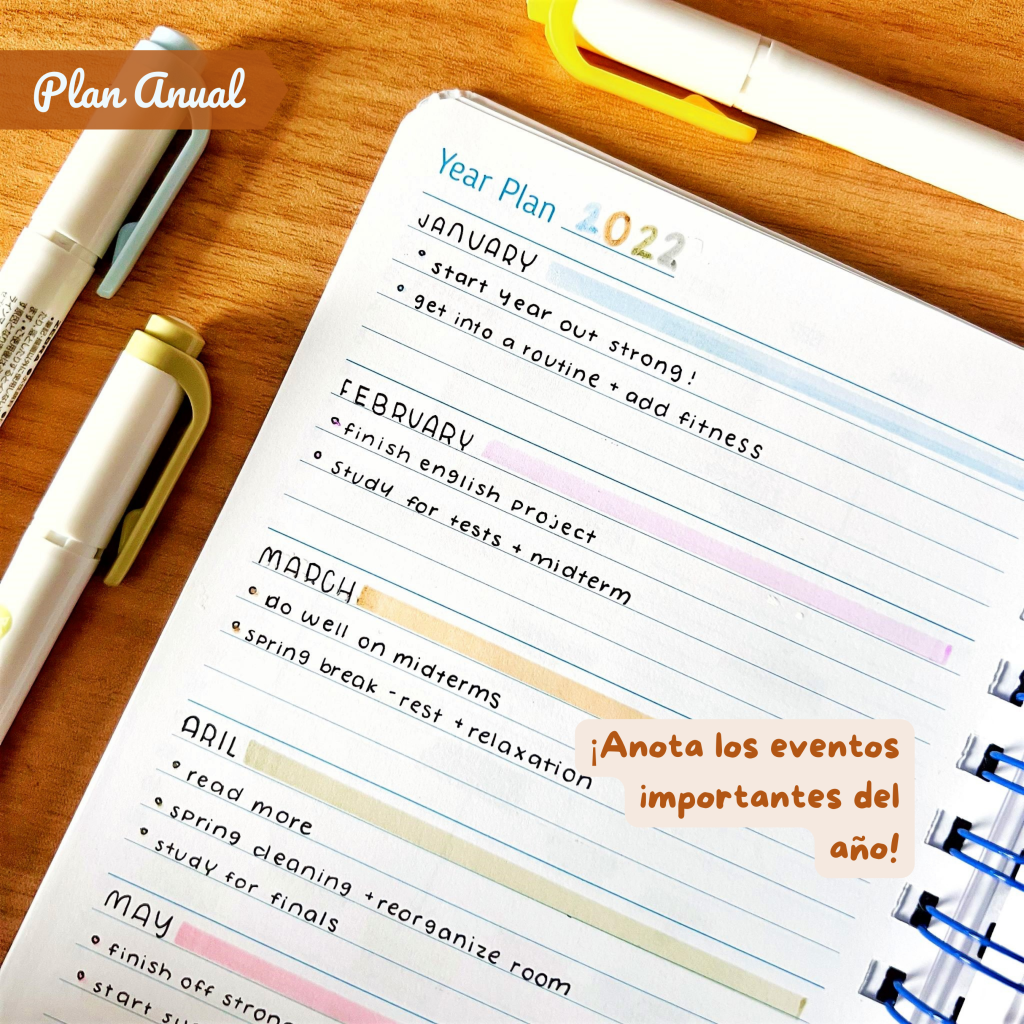 Plan Anual
Year Plan 2022
JANUARY
start year out strong!
get into a routine + add fitness
FEBRUARY
finish english project
study for tests + midterm
MARCH
do well on midterms
spring break - rest + relaxation
ARIL
read more
spring cleaning + reorganize room
study for finals
MAY
finish off strong
start
¡Anota los eventos
importantes del
año!